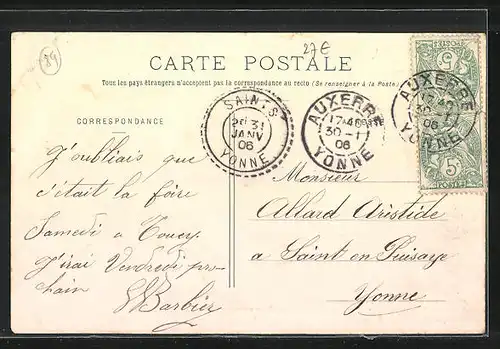 84
27€
CARTE POSTALE
Tous les pays étrangers n'acceptent pas la correspondance au recto (Se renseigner à la Poste.)
CORRESPONDANCE
SAINTS
31
JANV
06
YONNE
AUXERRE
17 45
30 - 11
06
YONNE
AUXERRE
06
YONNE
5c
POSTES
J'oubliais que
c'était la foire
Samedi a Toucy.
J'irai Vendredi pro-
chain
Barbier
Monsieur
Allard Aristide
a Saint en Puisaye
Yonne